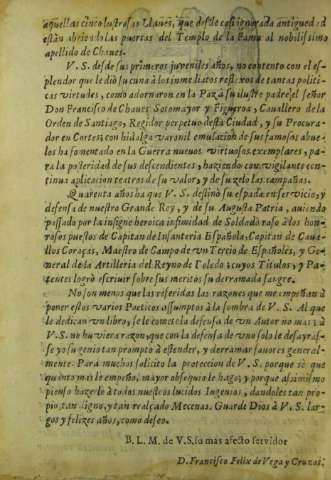 aquellas cinco lustrosas Llaves, que desde casi ignorada antiguedad
están abriendo las puertas del Templo de la Fama al nobilissimo
apellido de Chaues.
V. S. desde sus primeros juveniles años, no contento con el es-
plendor que le dió su cuna à los inmediatos restos de tantas politi-
cas virtudes, como adornaron en la Paz à su ilustre padre el señor
Don Francisco de Chaues Sotomayor y Figueroa, Cavallero de la
Orden de Santiago, Regidor perpetuo desta Ciudad, y su Procura-
dor en Cortes, con hidalga varonil emulacion de sus famosos abue-
los ha fomentado en la Guerra nueuos virtuosos exemplares, pa-
ra la posteridad de sus descendientes, haziendo con vigilante conti-
nua aplicacion teatros de su valor, y de su zelo las campañas.
Quarenta años ha que V. S. destinò su espada en servicio, y
defensa de nuestro Grande Rey, y de su Augusta Patria, auiendo
passado por la insigne heroica infimidad de Soldado raso à los hon-
rosos puestos de Capitan de Infanteria Española, Capitan de Caua-
llos Coraças, Maestro de Campo de vn Tercio de Españoles, y Ge-
neral de la Artilleria del Reyno de Toledo: cuyos Titulos, y Pa-
tentes logrò escriuir sobre sus meritos su derramada sangre.
No son menos que las referidas las razones que me empeñan à
poner estos varios Poeticos assumptos à la sombra de V. S. Al que
le dedican vn libro, se le comete la defensa de vn Autor no mas: à
V. S. no huviera razon, que con la defensa de vno solo le desayras-
se yo su genio tan prompto à estender, y derramar fauores general-
mente. Para muchos solicito la proteccion de V. S. porque sè que
quanto mas le empeño, mayor obsequio le hago; y porque assimismo
pienso hazerle à todos nuestros lucidos Ingenios, dandoles tan pro-
pio, tan digno, y tan realçado Mecenas. Guarde Dios à V. S. lar-
gos y felizes años, como deseo.
B. L. M. de V. S. su mas afecto servidor
D. Francisco Felix de Vega y Cruzat.